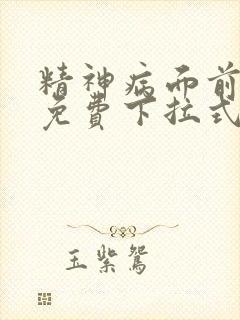 精神病而前
免費下拉式
玉紫鴛